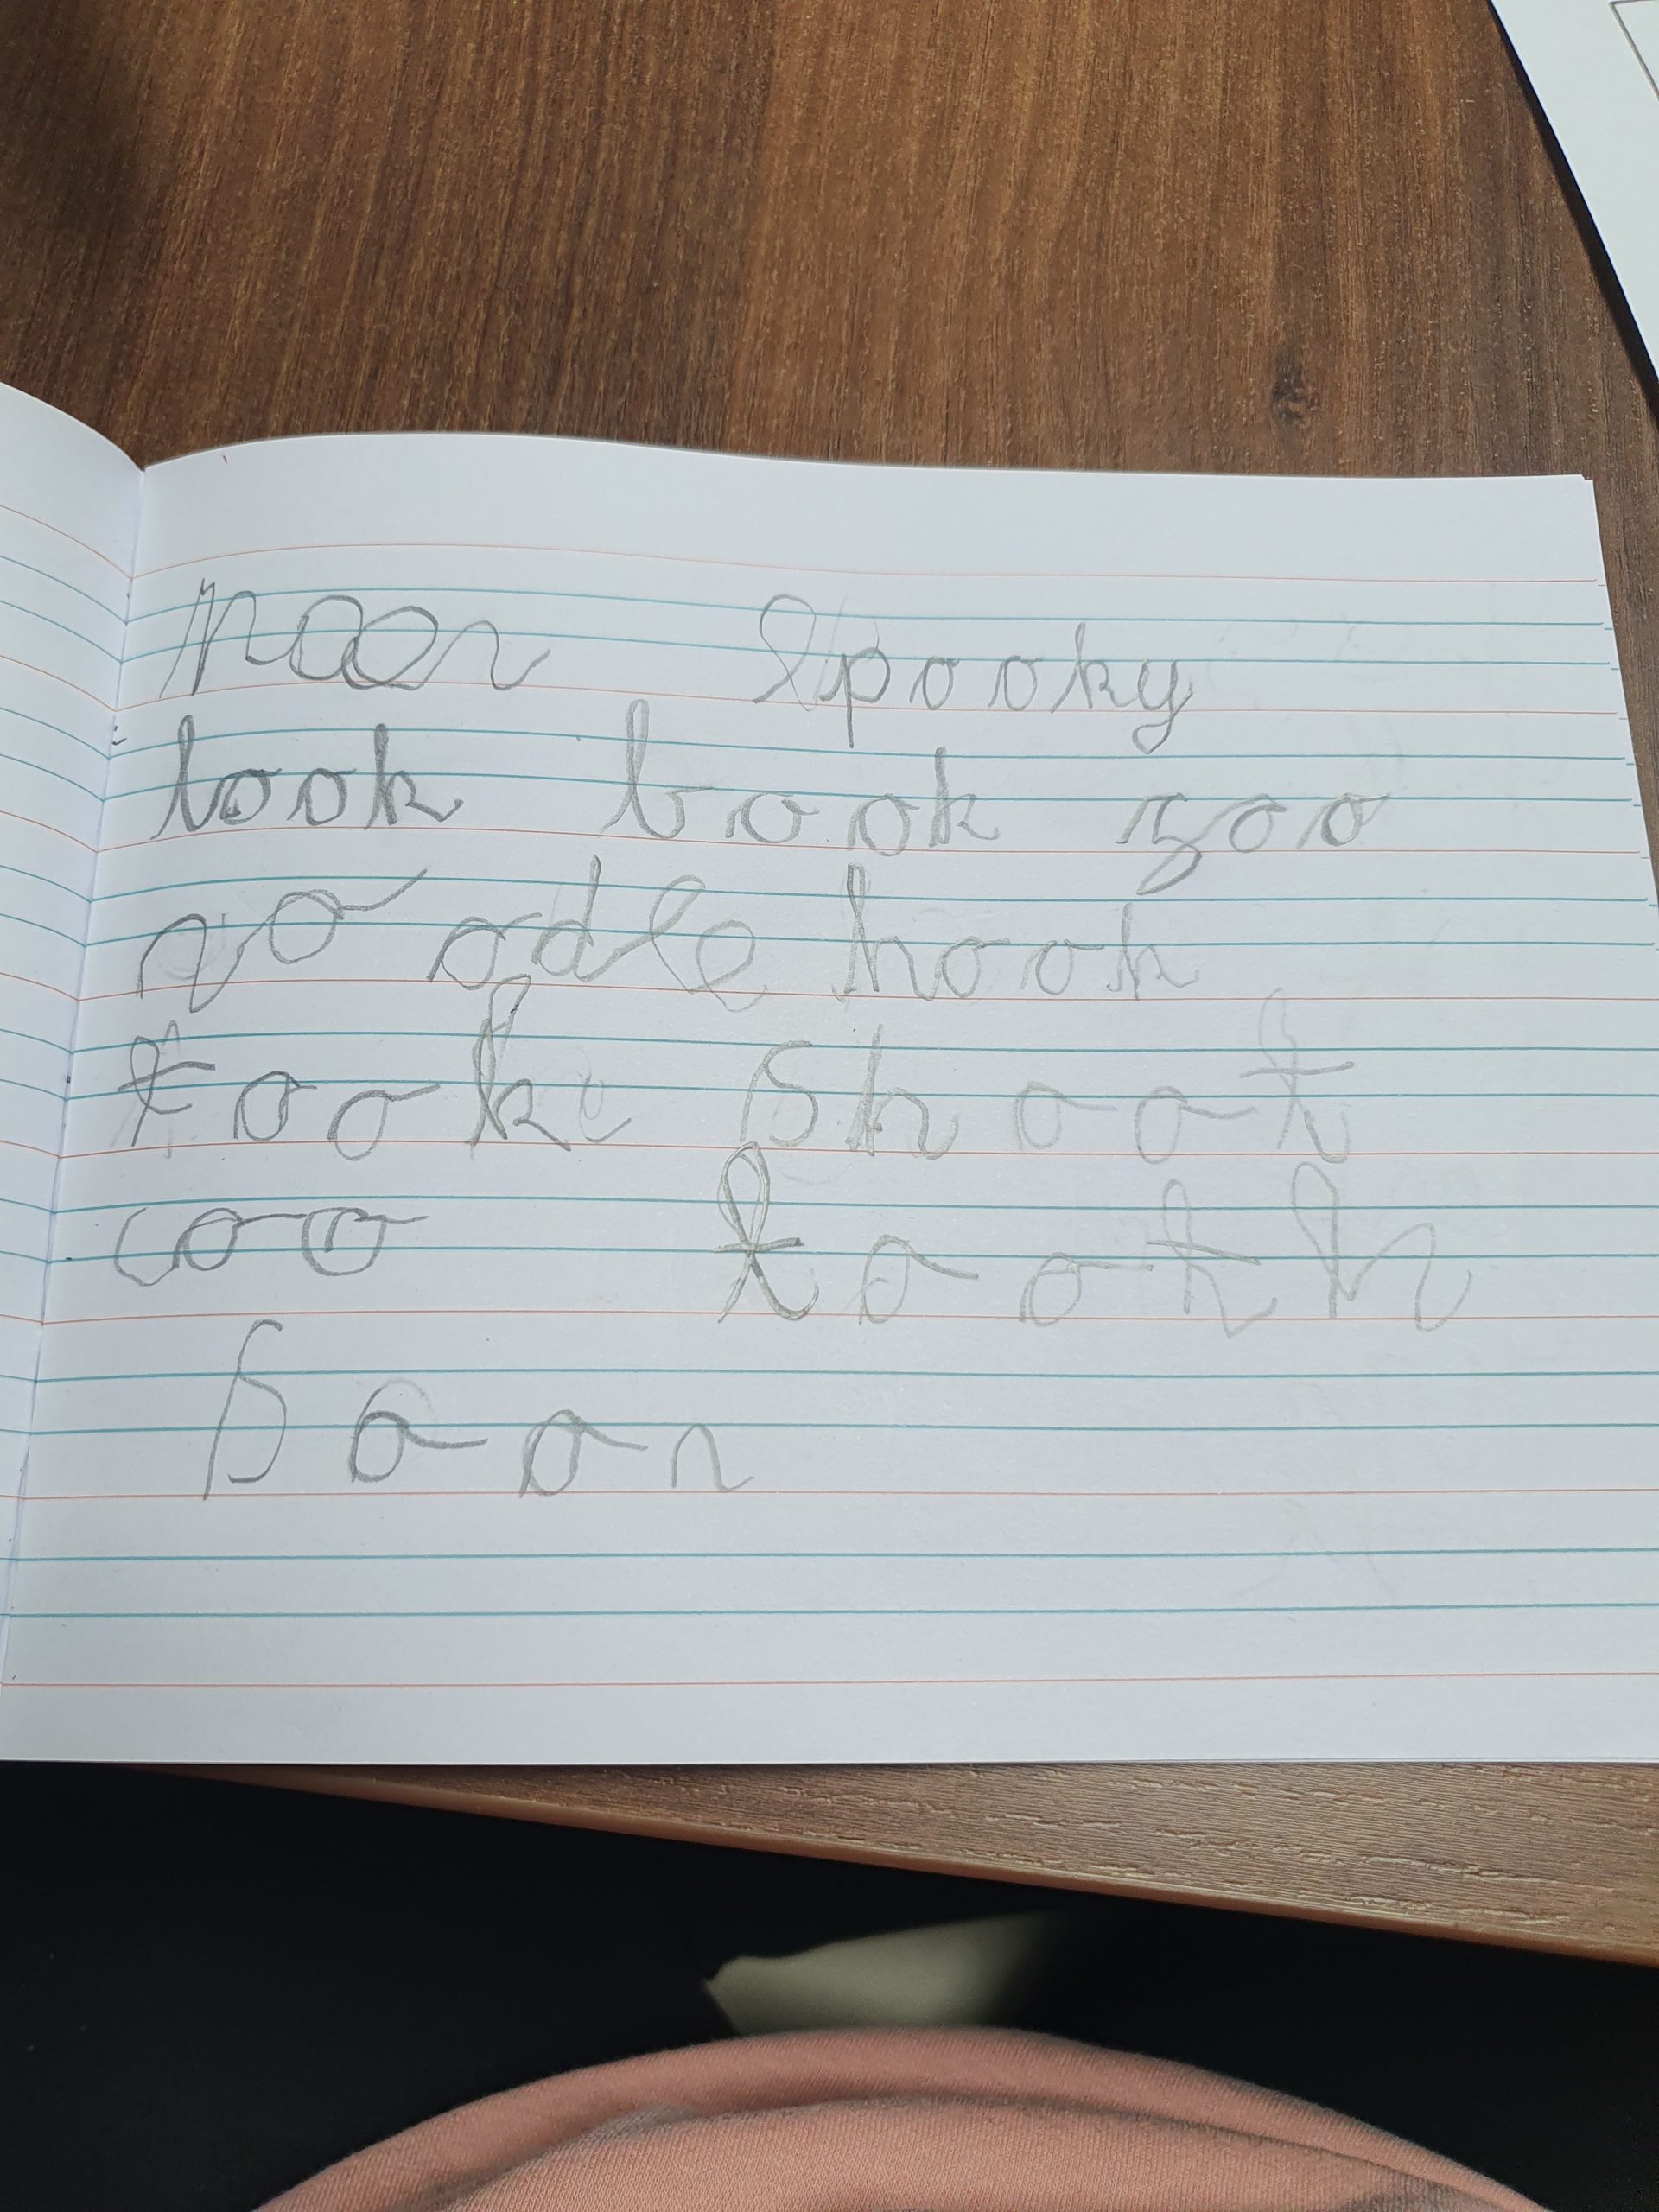 moon spooky
look book zoo
noodle hook
took shoot
coo tooth
soon